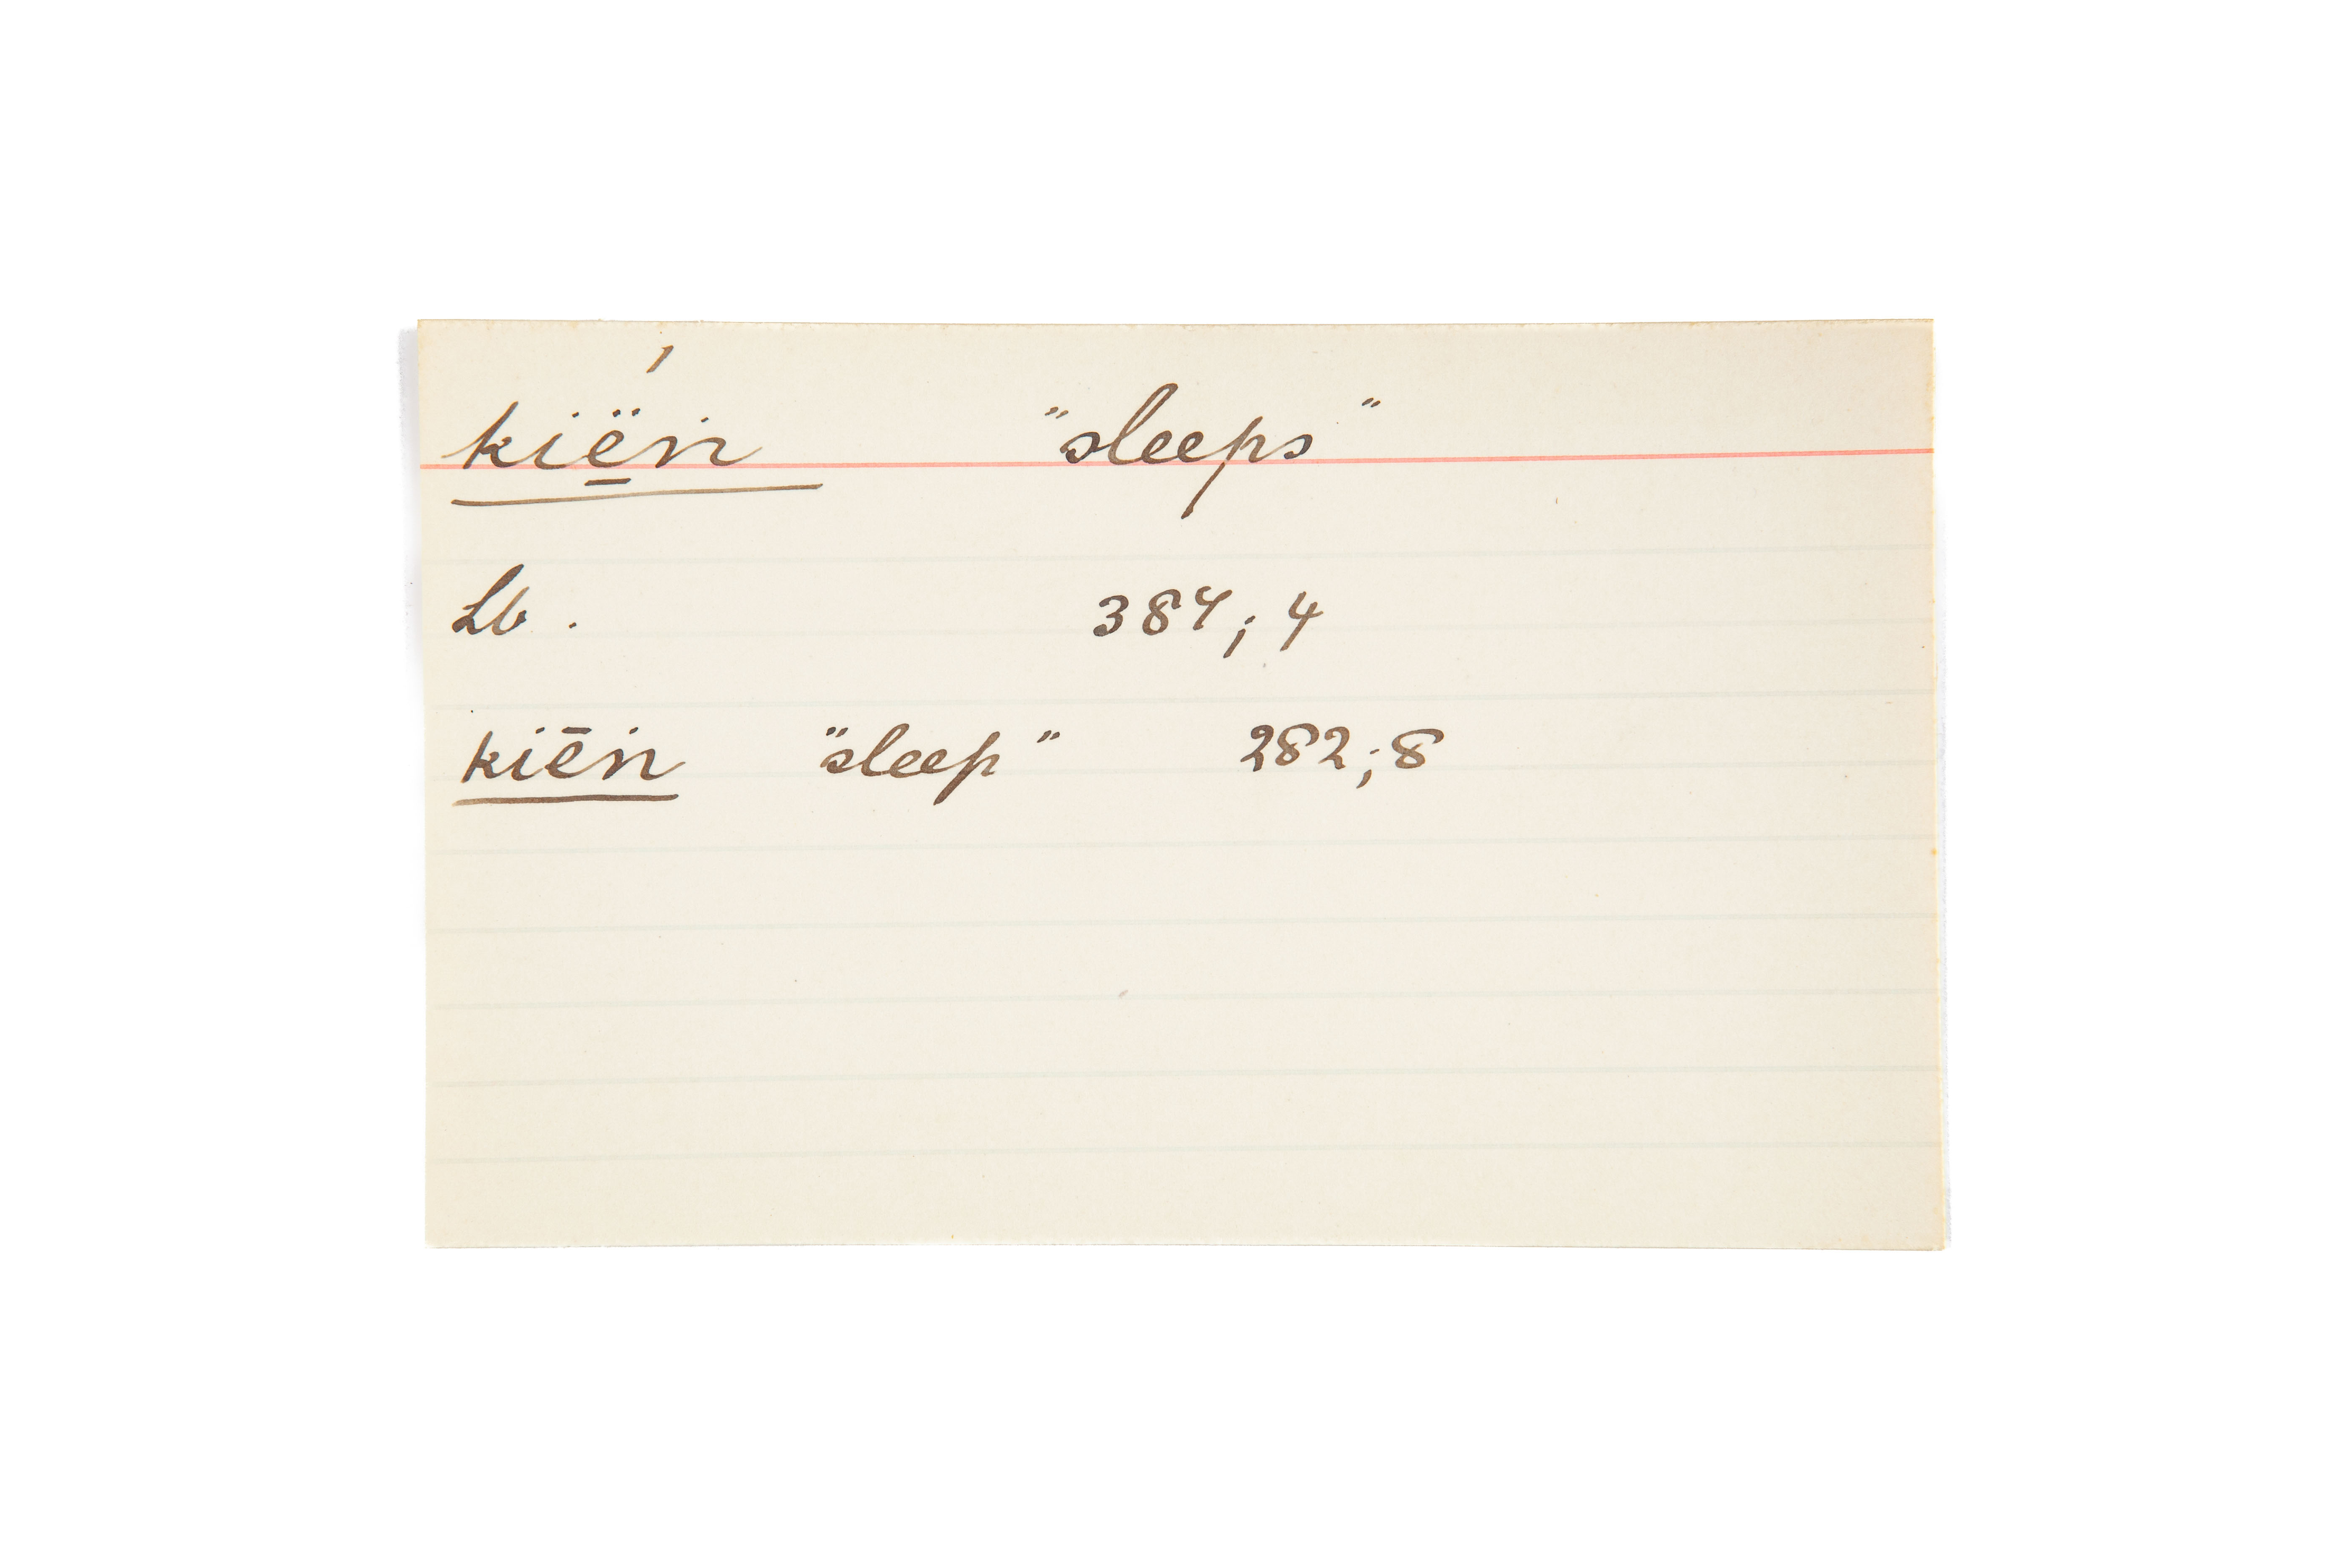 kië̱́ṅ "sleeps"
Lb. 384; 4
kiēṅ "sleep" 282; 8